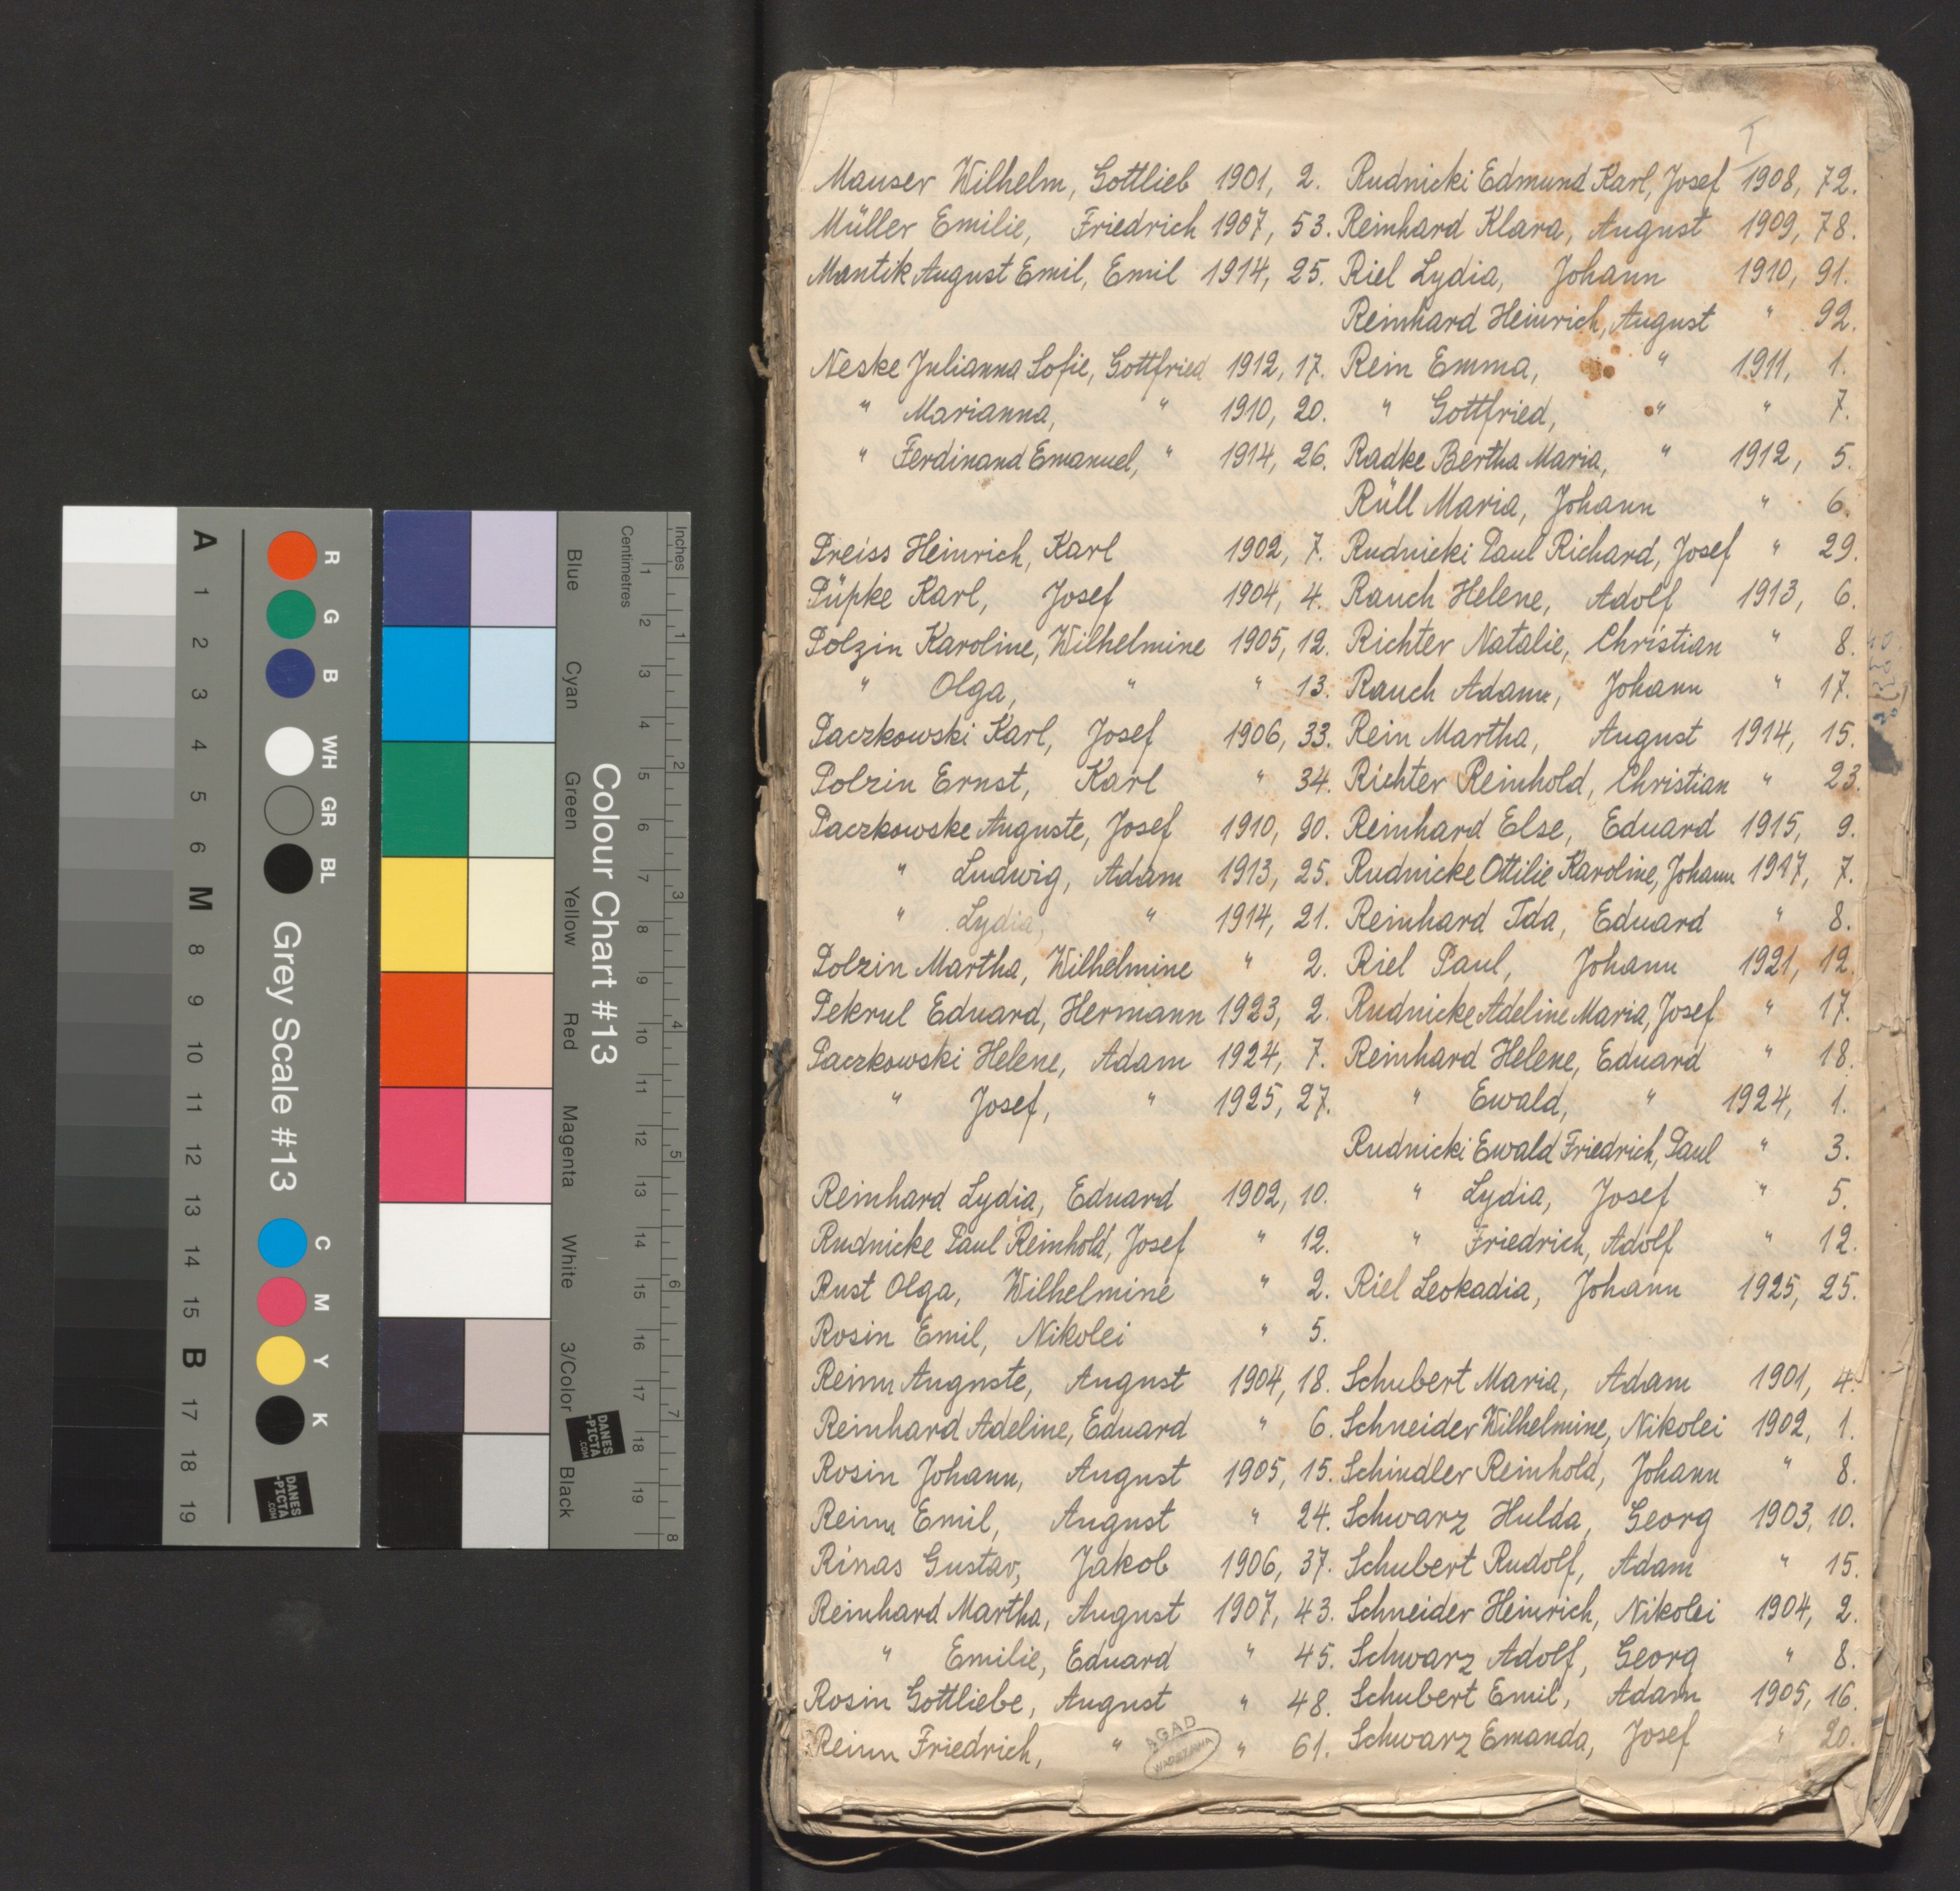 A
1
2
3
4
5
6
M
8
9
10
11
12
13
14
15
B
17
18
19
R
G
B
WH
GR
BL
Grey Scale #13
C
M
Y
K
DANES
-PICTA
.COM
Blue
Cyan
Green
Yellow
Red
Magenta
White
3/Color
Black
Colour Chart #13
DANES
-PICTA
.COM
Inches
Centimetres
1
2
3
4
5
6
7
8
9
10
11
12
13
14
15
16
17
18
19
1
2
3
4
5
6
7
8
Mauser Wilhelm, Gottlieb 1901, 2.
Müller Emilie, Friedrich 1907, 53.
Mantik August Emil, Emil 1914, 25.
Neske Julianna Sofie, Gottfried 1912, 17.
" Marianna, " 1910, 20.
" Ferdinand Emanuel, " 1914, 26.
Preiss Heinrich, Karl 1902, 7.
Püpke Karl, Josef 1904, 4.
Polzin Karoline, Wilhelmine 1905, 12.
" Olga, " " 13.
Paczkowski Karl, Josef 1906, 33.
Polzin Ernst, Karl " 34.
Paczkowske Auguste, Josef 1910, 90.
" Ludwig, Adam 1913, 25.
" Lydia, " 1914, 21.
Polzin Martha, Wilhelmine " 2.
Pekrul Eduard, Hermann 1923, 2.
Paczkowski Helene, Adam 1924, 7.
" Josef, " 1925, 27.
Reinhard Lydia, Eduard 1902, 10.
Rudnicke Paul Reinhold, Josef " 12.
Rust Olga, Wilhelmine " 2.
Rosin Emil, Nikolei " 5.
Reinn Auguste, August 1904, 18.
Reinhard Adeline, Eduard " 6.
Rosin Johann, August 1905, 15.
Reinn Emil, August " 24.
Rinas Gustav, Jakob 1906, 37.
Reinhard Martha, August 1907, 43.
" Emilie, Eduard " 45.
Rosin Gottliebe, August " 48.
Reinn Friedrich, " " 61.
AGAD
WARSZAWA
T
Rudnicki Edmund Karl, Josef 1908, 72.
Reinhard Klara, August 1909, 78.
Riel Lydia, Johann 1910, 91.
Reinhard Heinrich, August " 92.
Rein Emma, " 1911, 1.
" Gottfried, " " 7.
Radke Bertha Maria, " 1912, 5.
Rüll Maria, Johann " 6.
Rudnicki Paul Richard, Josef " 29.
Rauch Helene, Adolf 1913, 6.
Richter Natalie, Christian " 8.
Rauch Adam, Johann " 17.
Rein Martha, August 1914, 15.
Richter Reinhold, Christian " 23.
Reinhard Else, Eduard 1915, 9.
Rudnicke Ottilie Karoline, Johann 1917, 7.
Reinhard Ida, Eduard " 8.
Riel Paul, Johann 1921, 12.
Rudnicke Adeline Maria, Josef " 17.
Reinhard Helene, Eduard " 18.
" Ewald, " 1924, 1.
Rudnicki Ewald Friedrich, Paul " 3.
" Lydia, Josef " 5.
" Friedrich, Adolf " 12.
Riel Leokadia, Johann 1925, 25.
Schubert Maria, Adam 1901, 4.
Schneider Wilhelmine, Nikolei 1902, 1.
Schindler Reinhold, Johann " 8.
Schwarz Hulda, Georg 1903, 10.
Schubert Rudolf, Adam " 15.
Schneider Heinrich, Nikolei 1904, 2.
Schwarz Adolf, Georg " 8.
Schubert Emil, Adam 1905, 16.
Schwarz Emanda, Josef " 20.